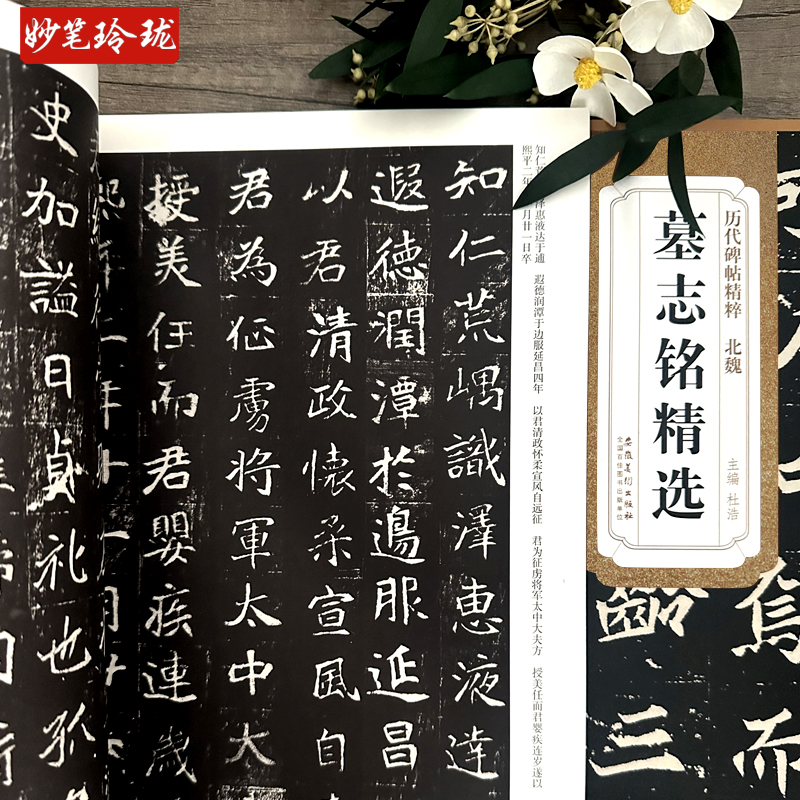 妙笔玲珑
历代碑帖精粹 北魏
墓志铭精选
主编 杜浩
安徽美术出版社
全国百佳图书出版单位
而
三
知仁 泽惠液达于通 遐德润潭于边服延昌四年 以君清政怀柔宣风自远征 君为征虏将军太中大夫方 授美任而君婴疾连岁遂以
熙平二年 月廿一日卒
知仁荒嵎識澤惠液達
遐德潤潭於邊服延昌
以君清政懷柔宣風自
君為征虜將軍太中大
授美任而君嬰疾連歲
熙平二年十一月廿
史加謚曰貞礼也孤